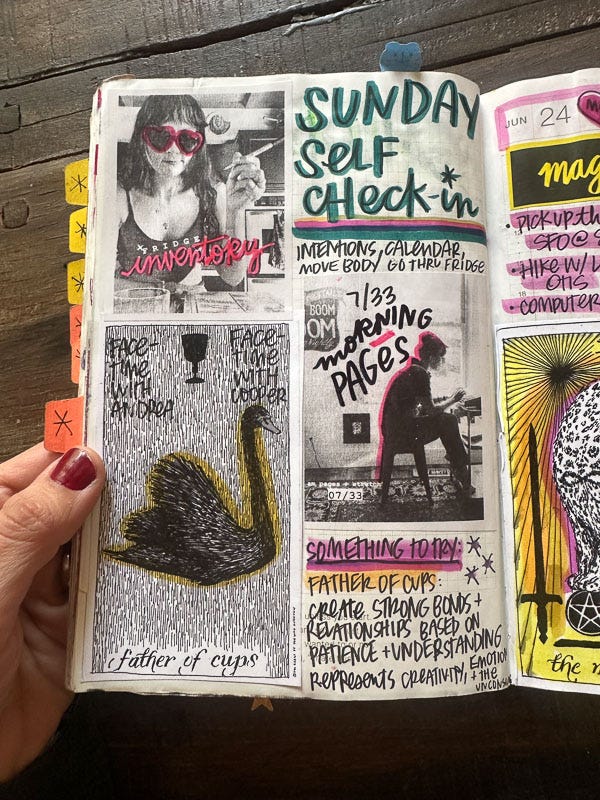 FRIDGE
inventory
FACE-
TIME
WITH
ANDREA
FACE-
TIME
WITH
COOPER
father of cups
SUNDAY
SELF
CHECK-in
INTENTIONS, CALENDAR,
MOVE BODY GO THRU FRIDGE
7/33
MORNING
PAGES
BOOM
OM
am pages + stretch
07/33
SOMETHING TO TRY:
FATHER OF CUPS:
CREATE STRONG BONDS +
RELATIONSHIPS BASED ON
PATIENCE + UNDERSTANDING
REPRESENTS CREATIVITY, EMOTION
+ THE
JUN 24
mag
• PICK UP th
SFO @
• HIKE W/ L
OTIS
• COMPUTER
the